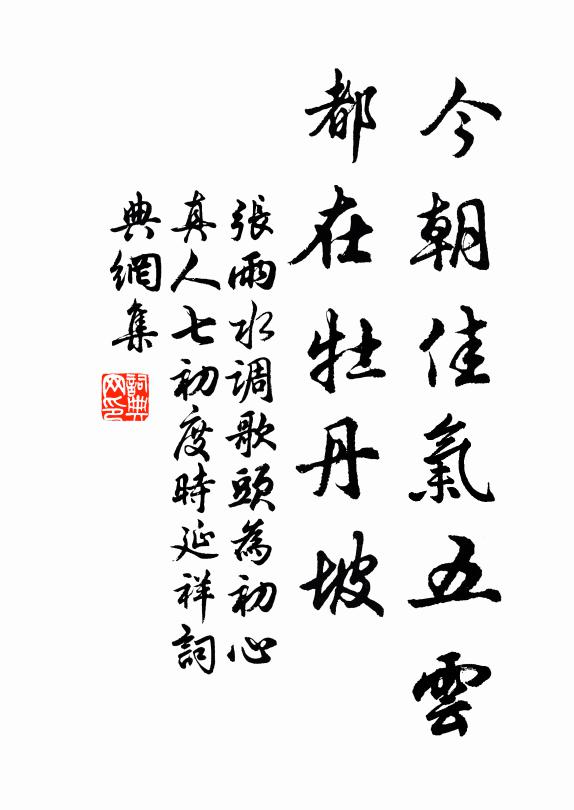 今朝佳氣五雲
都在牡丹坡
張雨水调歌頭為初心
真人七初度時延祥詞
典網集
詞典
网印